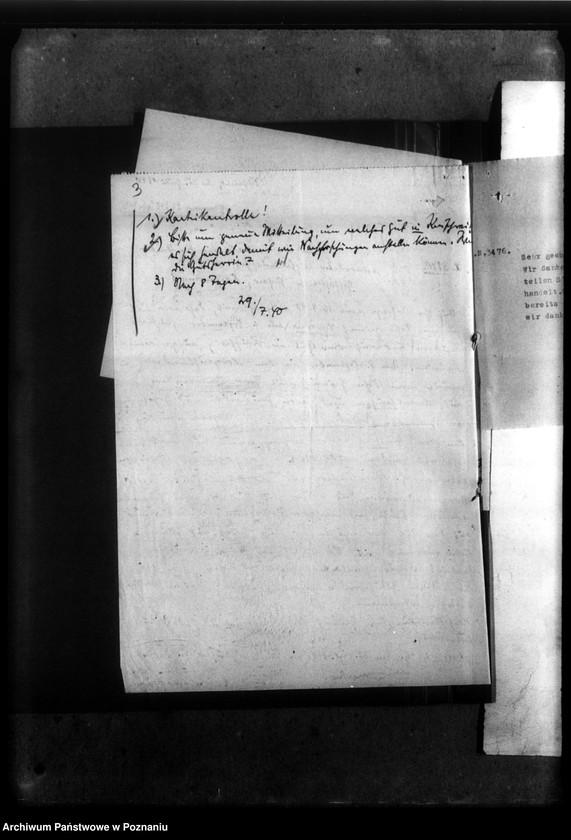 3
1.) Karteikontrolle!
2) Bitte um genaue Mitteilung, um welches Gut in
es sich handelt, damit wir Nachforschungen anstellen können.
die Gutsherrin?
3) Nach 8 Tagen.
29./7.40
.3476.
Sehr gee
Wir danke
teilen S
handelt.
bereits
wir dank
Archiwum Państwowe w Poznaniu